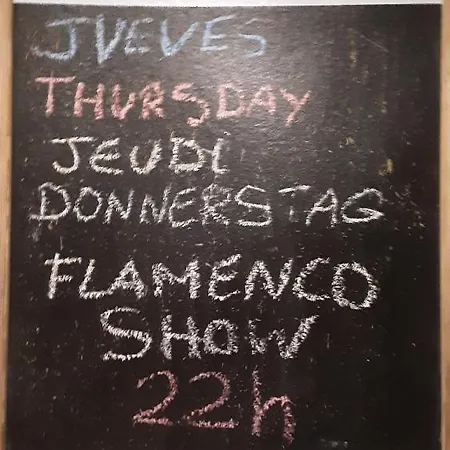 JUEVES
THURSDAY
JEUDI
DONNERSTAG
FLAMENCO
SHOW
22h